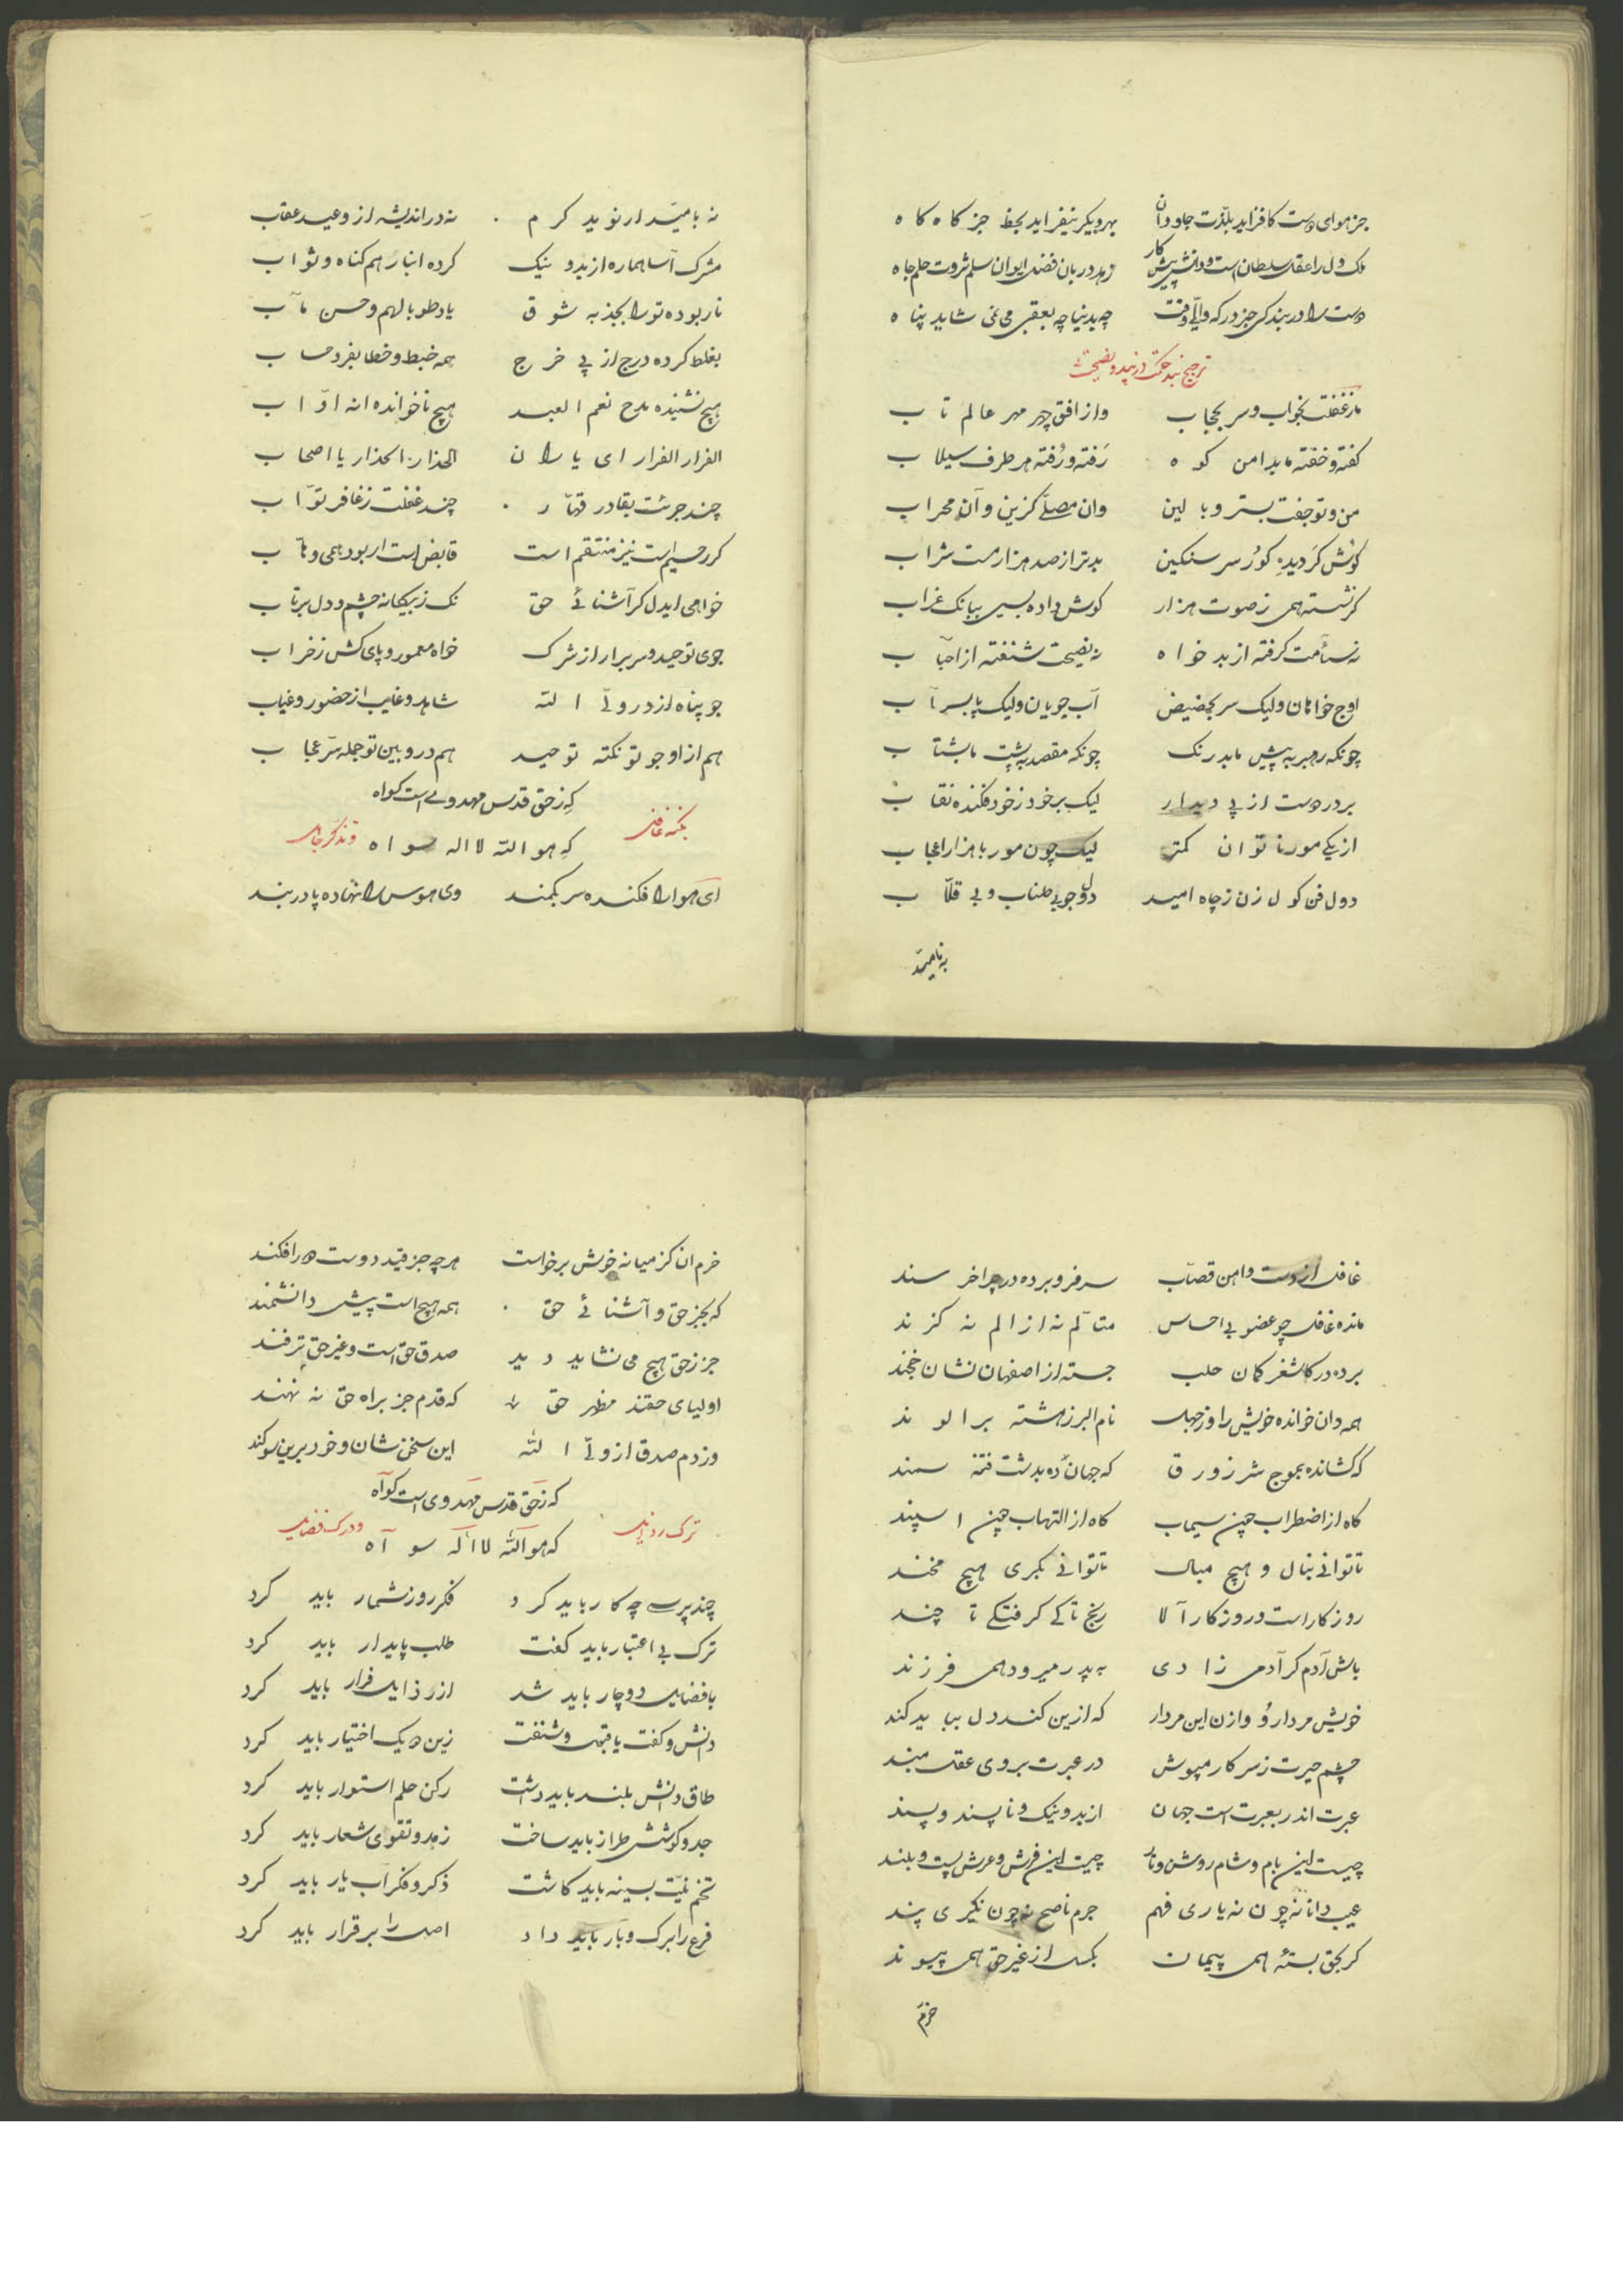 جز هوای دوست کافزاید بلذت جاودان بهر و یکر نیفزاید بحظ جز کاه کاه
ملک دل را عقل سلطان است و دانش پیش کار زهد دربان فضل ایوان سلم ثروت حلم جاه
دست را در بندکی جز درکه والی وقت چه بدنیا چه بعقبی می نی شاید پناه
ترجیع بند حکمت در پند و نصیحت
ما ز غفلت بخواب و سر بحجاب واز افق چهر مهر عالم تاب
کفته و خفته ما بدامن کوه رفته و رفته هر طرف سیلاب
من و تو جفت بستر و بالین وان مصلی کزین و آن محراب
کوش کر دیده کور سر سنکین بدتر از صد هزار مست شراب
کر نشسته همی ز صوت هزار کوش داده بسی ببانک غراب
نه سأمت کرفته از بدخواه نه نصیحت شنفته از احباب
اوج خواهان ولیک سر بحضیض آب جویان ولیک پا بسراب
چونکه رهبر به پیش ما بدرنک چونکه مقصد به پشت ما بشتاب
بر در دوست از پی دیدار لیک بر خود ز خود فکنده نقاب
از یکی مور ناتوان کمتر لیک چون مور با هزار اعجاب
دول فن کول زن ز چاه امید دلو جو بی طناب و بی قلاب
به نامید
نه بامید از نوید کرم نه در اندیشه از وعید عقاب
مشرک آسا هماره از بد و نیک کرده انبار هم کناه و ثواب
نار بوده تو را بجذبه شوق یاد طوبا لهم و حسن مآب
بغلط کرده درج از پی خرج همه خبط و خطا بفرد حساب
هیچ نشنیده مدح نعم العبد هیچ ناخوانده انه اوّاب
الفرار الفرار ای یاران الحذار الحذار یا اصحاب
چند جرئت بقادر قهّار چند غفلت ز غافر توّاب
کر رحیم است نیز منتقم است قابض است ار بود همی وهاب
خواهی ایدل کر آشنائی حق نک ز بیکانه چشم و دل برتاب
جوی توحید و سر برار از شرک خواه معمور و پای کش ز خراب
جو پناه از در ولی الله شاهد و غایب از حضور و غیاب
هم از او جو تو نکته توحید هم در و بین تو جمله سرّ عجاب
که ز حق قدس مهدوی است کواه
که هو الله لا اله سواه
تنبّه غافل و تذکر جاهل
ای هوا را فکنده سر بکمند وی هوس را نهاده پا در بند
غافل از دست و اهن قصّاب سر فرو برده در چراخر سند
مانده غافل چو عضو بی احساس متألم نه از الم نه کزند
برده در کاشغر کمان حلب جسته از اصفهان نشان خجند
همه دان خوانده خویش را وز جهل نام البرز هشته بر الوند
که کشانده بموج شر زورق که جهانده بدشت فتنه سمند
کاه از اضطراب چین سیماب کاه از التهاب چین اسپند
تا توانی بنال و هیچ مبال تا توانی بکری هیچ مخند
روز کار است و روزکار آلا رنج تا کی کرفتکی تا چند
باش آدم کر آدمی زادی به پدر میرود همی فرزند
خویش مردار و وازن این مردار که ازین کند دل بباید کند
چشم حیرت ز سر کار مپوش در عبرت بروی عقل مبند
عبرت اندر بعبرت است جهان از بد و نیک و ناپسند و پسند
چیست این بام و شام روشن و تار چیست این فرش و عرش پست و بلند
عیب دانا نه چون نه یاری فهم جرم ناصح نه چون نکیری پند
کر بحق بستهٔ همی پیمان بکسل از غیر حق همی پیوند
خرّم
خرم ان کز میانه خوش برخواست هر چه جز قید دوست ه رافکند
که بجز حق و آشنائی حق همه هیچ است پیش دانشمند
جز ز حق هیچ می نشاید دید صدق حق است و غیر حق ترفند
اولیای حقند مظهر حق که قدم جز براه حق نه نهند
وز دم صدق از ولی الله این سخن نشان و خود برین سوکند
که ز حق قدس مهدوی است کواه
که هو الله لا اله سواه
ترک رذایل و درک فضایل
چند پرسی چه کار باید کرد فکر روز شمار باید کرد
ترک بی اعتبار باید کفت طلب پایدار باید کرد
با فضایل دوچار باید شد از رذایل فرار باید کرد
دانش و کفت یا قبول و شنفت زین ه یک اختیار باید کرد
طاق دانش بلند باید داشت رکن حلم استوار باید کرد
جد و کوشش طراز باید ساخت زهد و تقوی شعار باید کرد
تخم نیّت بسینه باید کاشت ذکر و فکر آب یار باید کرد
فرع را برک و بار باید داد اصل را برقرار باید کرد